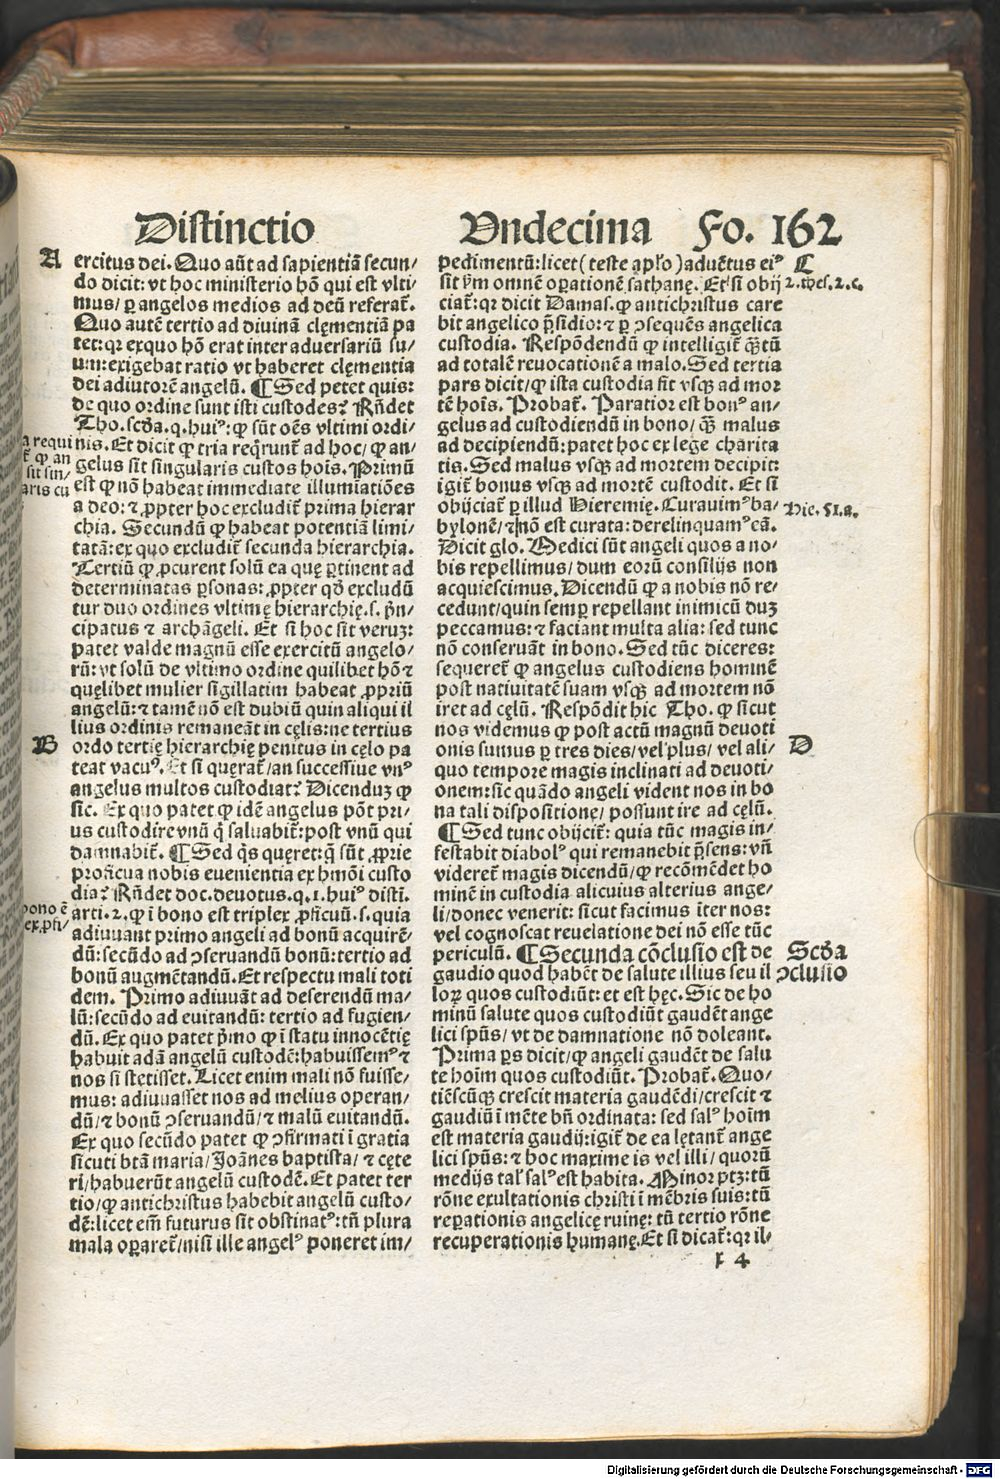 Distinctio Vndecima Fo. 162
A
ercitus dei. Quo aūt ad sapientiā secun/
do dicit: vt hoc ministerio hō qui est vlti/
mus/ ꝑ angelos medios ad deū referat᷒.
Quo autē tertio ad diuinā clęmentiā pa
tet: qꝛ exquo hō erat inter aduersariū su/
um: exigebat ratio vt haberet clęmentia
dei adiutorē angelū. ¶ Sed petet quis:
de quo ordine sunt isti custodes? Rn̄det
Tho. scḋa. q. huiꝰ: ꝙ sūt oēs vltimi ordi/
nis. Et dicit ꝙ tria reqͥrunt᷒ ad hoc/ ꝙ an/
gelus sit singularis custos hoīs. Primū
est ꝙ nō habeat immediate illumīatiōes
a deo: ⁊ ꝓpter hoc excludit᷒ prima hierar
chia. Secundū ꝙ habeat potentiā limi/
tatā: ex quo excludit᷒ secunda hierarchia.
Tertiū ꝙ ꝓcurent solū ea quę ꝑtinent ad
determinatas ꝑsonas: ꝓpter qḋ excludū
tur duo ordines vltimę hierarchię. s. pͥn/
cipatus ⁊ archāgeli. Et si hoc sit veruꝫ:
patet valde magnū esse exercitū angelo/
rū: vt solū de vltimo ordine quilibet hō ⁊
quęlibet mulier sigillatim habeat ꝓpriū
angelū: ⁊ tamē nō est dubiū quin aliqui il
lius ordinis remaneāt in cęlis: ne tertius
B
ordo tertię hierarchię penitus in cęlo pa
teat vacuꝰ. Et si quęrat᷒/ an successiue vnꝰ
angelus multos custodiat? Dicenduꝫ ꝙ
sic. Ex quo patet ꝙ idē angelus pōt pri/
us custodire vnū qͥ saluabit᷒: post vnū qui
damnabit᷒. ¶ Sed qͥs quęret: qͣ sūt ꝓprie
proficua nobis euenientia ex hmōi custo
dia? Rn̄det doc. deuotus. q. 1. huiꝰ disti.
arti. 2. ꝙ ī bono est triplex ꝓficuū. s. quia
adiuuant primo angeli ad bonū acquirē/
dū: secūdo ad ↄseruandū bonū: tertio ad
bonū augmētandū. Et respectu mali toti
dem. Primo adiuuāt ad deserendū ma/
lū: secūdo ad euitandū: tertio ad fugien/
dū. Ex quo patet pͥmo ꝙ ī statu innocētię
habuit adā angelū custodē: habuissemꝰ ⁊
nos si stetisset. Licet enim mali nō fuisse/
mus: adiuuasset nos ad melius operan/
dū/ ⁊ bonū ↄseruandū/ ⁊ malū euitandū.
Ex quo secūdo patet ꝙ ↄfirmati ī gratia
sicuti btā maria/ Joānes baptista/ ⁊ cęte
ri/ habuerūt angelū custodē. Et patet ter
tio/ ꝙ antichristus habebit angelū custo/
dē: licet em̄ futurus sit obstinatꝰ: tn̄ plura
mala oꝑaret᷒/ nisi ille angelꝰ poneret im/
a requi
sit sin/
aris cu
bono ē
pedimentū: licet (teste apl̄o) aduētus eiꝰ
sit ẜm omnē oꝑationē sathanę. Et si obij
ciat᷒: qꝛ dicit Damas. ꝙ antichristus care
bit angelico pͤsidio: ⁊ ꝑ ↄsequēs angelica
custodia. Respōdendū ꝙ intelligit᷒ qͣꝫtū
ad totalē reuocationē a malo. Sed tertia
pars dicit/ ꝙ ista custodia fit vsqꝫ ad mor
tē hoīs. Probat᷒. Paratior est bonꝰ an/
gelus ad custodiendū in bono/ qͣꝫ malus
ad decipiendū: patet hoc ex lege charita
tis. Sed malus vsqꝫ ad mortem decipit:
igit᷒ bonus vsqꝫ ad mortē custodit. Et si
obijciat᷒ ꝑ illud Hieremię. Curauimꝰ ba/
bylonē/ ⁊ nō est curata: derelinquamꝰ eā.
Dicit glo. Medici sūt angeli quos a no/
bis repellimus/ dum eorū consilijs non
acquiescimus. Dicendū ꝙ a nobis nō re/
cedunt/ quin semꝑ repellant inimicū duꝫ
peccamus: ⁊ faciant multa alia: sed tunc
nō conseruāt in bono. Sed tūc diceres:
sequeret᷒ ꝙ angelus custodiens hominē
post natiuitatē suam vsqꝫ ad mortem nō
iret ad cęlū. Respōdit hic Tho. ꝙ sicut
nos videmus ꝙ post actū magnū deuoti
onis sumus ꝑ tres dies/ vel plus/ vel ali/
quo tempore magis inclinati ad deuoti/
onem: sic quādo angeli vident nos in bo
na tali dispositione/ possunt ire ad cęlū.
¶ Sed tunc obijcit᷒: quia tūc magis in/
festabit diabolꝰ qui remanebit pͤsens: vn̄
videret᷒ magis dicendū/ ꝙ recōmēdet ho
minē in custodia alicuius alterius ange/
li/ donec venerit: sicut facimus īter nos:
vel cognoscat reuelatione dei nō esse tūc
periculū. ¶ Secunda cōclusio est de
gaudio quod habēt de salute illius seu il
loꝝ quos custodiūt: et est hęc. Sic de ho
minū salute quos custodiūt gaudēt ange
lici sp̄us/ vt de damnatione nō doleant.
Prima ꝑs dicit/ ꝙ angeli gaudēt de salu
te hoīm quos custodiūt. Probat᷒. Quo/
tiēscūqꝫ crescit materia gaudēdi/ crescit ⁊
gaudiū ī mēte bn̄ ordinata: sed salꝰ hoīm
est materia gaudij: igit᷒ de ea lętant᷒ ange
lici sp̄us: ⁊ hoc maxime is vel illi/ quorū
medijs talꝭ salꝰ est habita. Minor ptꝫ: tū
rōne exultationis christi ī mēbris suis: tū
reꝑationis angelicę ruinę: tū tertio rōne
recuperationis humanę. Et si dicat᷒: qꝛ il-
C
2. thes. 2. c.
Hie. 51. a.
D
Scḋa
ↄclusio
x 4
Digitalisierung gefördert durch die Deutsche Forschungsgemeinschaft - DFG